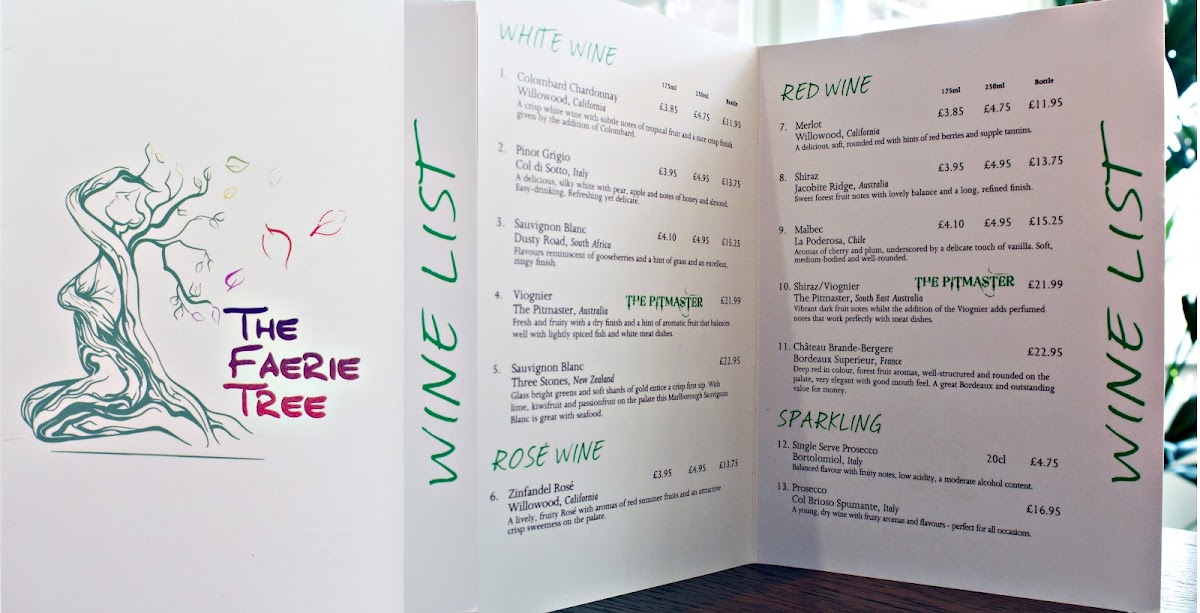 THE
FAERIE
TREE
WINE LIST
WHITE WINE
175ml 250ml Bottle
1. Colombard Chardonnay
Willowood, California £3.85 £4.75 £11.95
A crisp white wine with subtle notes of tropical fruit and a nice crisp finish
given by the addition of Colombard.
2. Pinot Grigio
Col di Sotto, Italy £3.95 £4.95 £13.75
A delicious, silky white with pear, apple and notes of honey and almond.
Easy-drinking, Refreshing yet delicate.
3. Sauvignon Blanc
Dusty Road, South Africa £4.10 £4.95 £15.25
Flavours reminiscent of gooseberries and a hint of grass and an excellent,
zingy finish.
4. Viognier THE PITMASTER £21.99
The Pitmaster, Australia
Fresh and fruity with a dry finish and a hint of aromatic fruit that balances
well with lightly spiced fish and white meat dishes.
5. Sauvignon Blanc £22.95
Three Stones, New Zealand
Glass bright greens and soft shards of gold entice a crisp first sip. With
lime, kiwifruit and passionfruit on the palate this Marlborough Sauvignon
Blanc is great with seafood.
ROSÉ WINE
6. Zinfandel Rosé £3.95 £4.95 £13.75
Willowood, California
A lively, fruity Rosé with aromas of red summer fruits and an attractive
crisp sweetness on the palate.
RED WINE
175ml 250ml Bottle
7. Merlot £3.85 £4.75 £11.95
Willowood, California
A delicious, soft, rounded red with hints of red berries and supple tannins.
8. Shiraz £3.95 £4.95 £13.75
Jacobite Ridge, Australia
Sweet forest fruit notes with lovely balance and a long, refined finish.
9. Malbec £4.10 £4.95 £15.25
La Poderosa, Chile
Aromas of cherry and plum, underscored by a delicate touch of vanilla. Soft,
medium-bodied and well-rounded.
10. Shiraz/Viognier THE PITMASTER £21.99
The Pitmaster, South East Australia
Vibrant dark fruit notes whilst the addition of the Viognier adds perfumed
notes that work perfectly with meat dishes.
11. Château Brande-Bergere £22.95
Bordeaux Superieur, France
Deep red in colour, forest fruit aromas, well-structured and rounded on the
palate, very elegant with good mouth feel. A great Bordeaux and outstanding
value for money.
SPARKLING
12. Single Serve Prosecco 20cl £4.75
Bortolomiol, Italy
Balanced flavour with fruity notes, low acidity, a moderate alcohol content.
13. Prosecco £16.95
Col Brioso Spumante, Italy
A young, dry wine with fruity aromas and flavours - perfect for all occasions.
WINE LIST